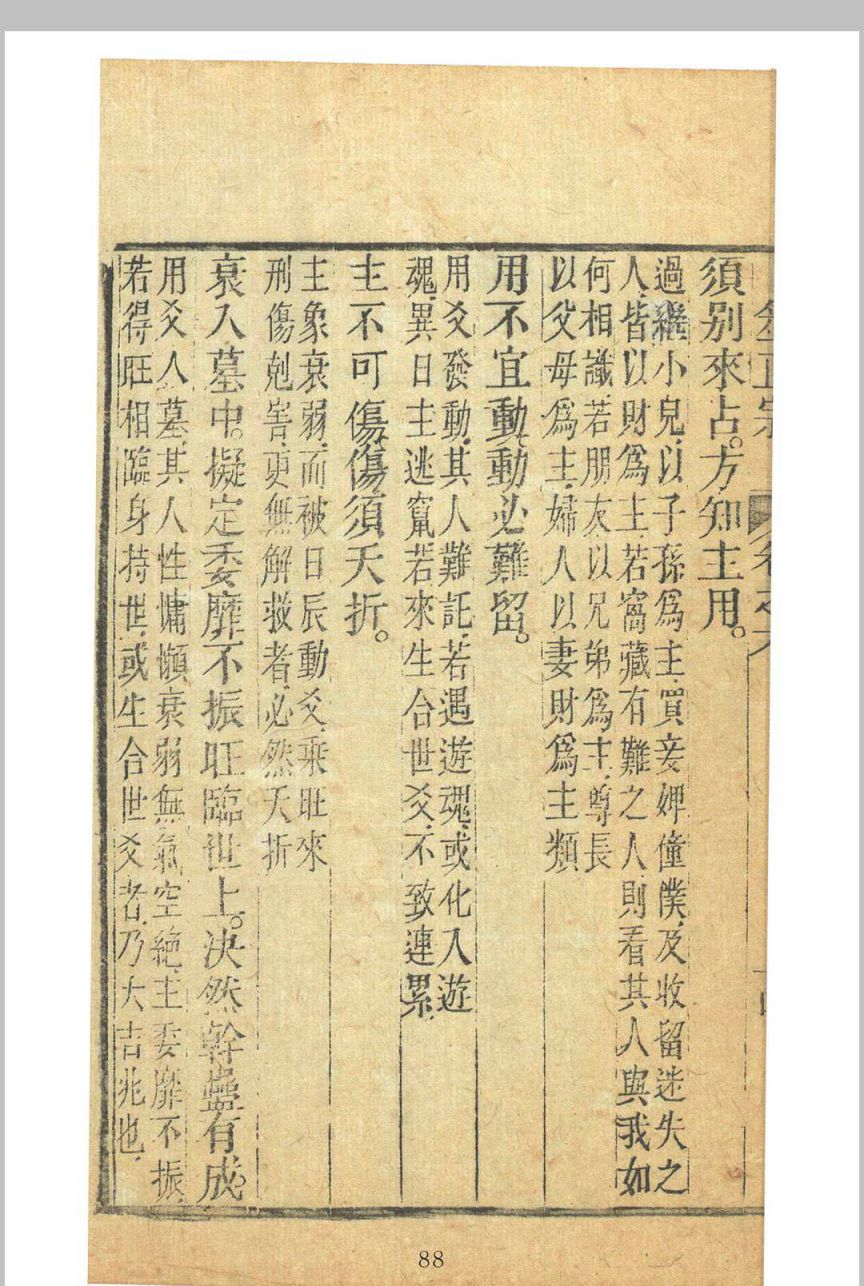 須别來占。方知主用。
過繼小兒以子孫爲主買妾婢僮僕及收留迷失之
人皆以財爲主若窩藏有難之人則看其人與我如
何相識若朋友以兄弟爲主尊長
以父母爲主婦人以妻財爲主類
用不宜動動必難留。
用爻發動其人難託若遇遊魂或化入遊
魂異日主逃竄若來生合世爻不致連累
主不可傷傷須夭折。
主象衰弱而被日辰動爻乘旺來
刑傷剋害更無解救者必然夭折
衰入墓中。擬定委靡不振旺臨世上。决然幹蠱有成。
用爻人墓其人性慵懶衰弱無氣空絶主委靡不振
若得旺相臨身持世或生合世爻者乃大吉兆也
88